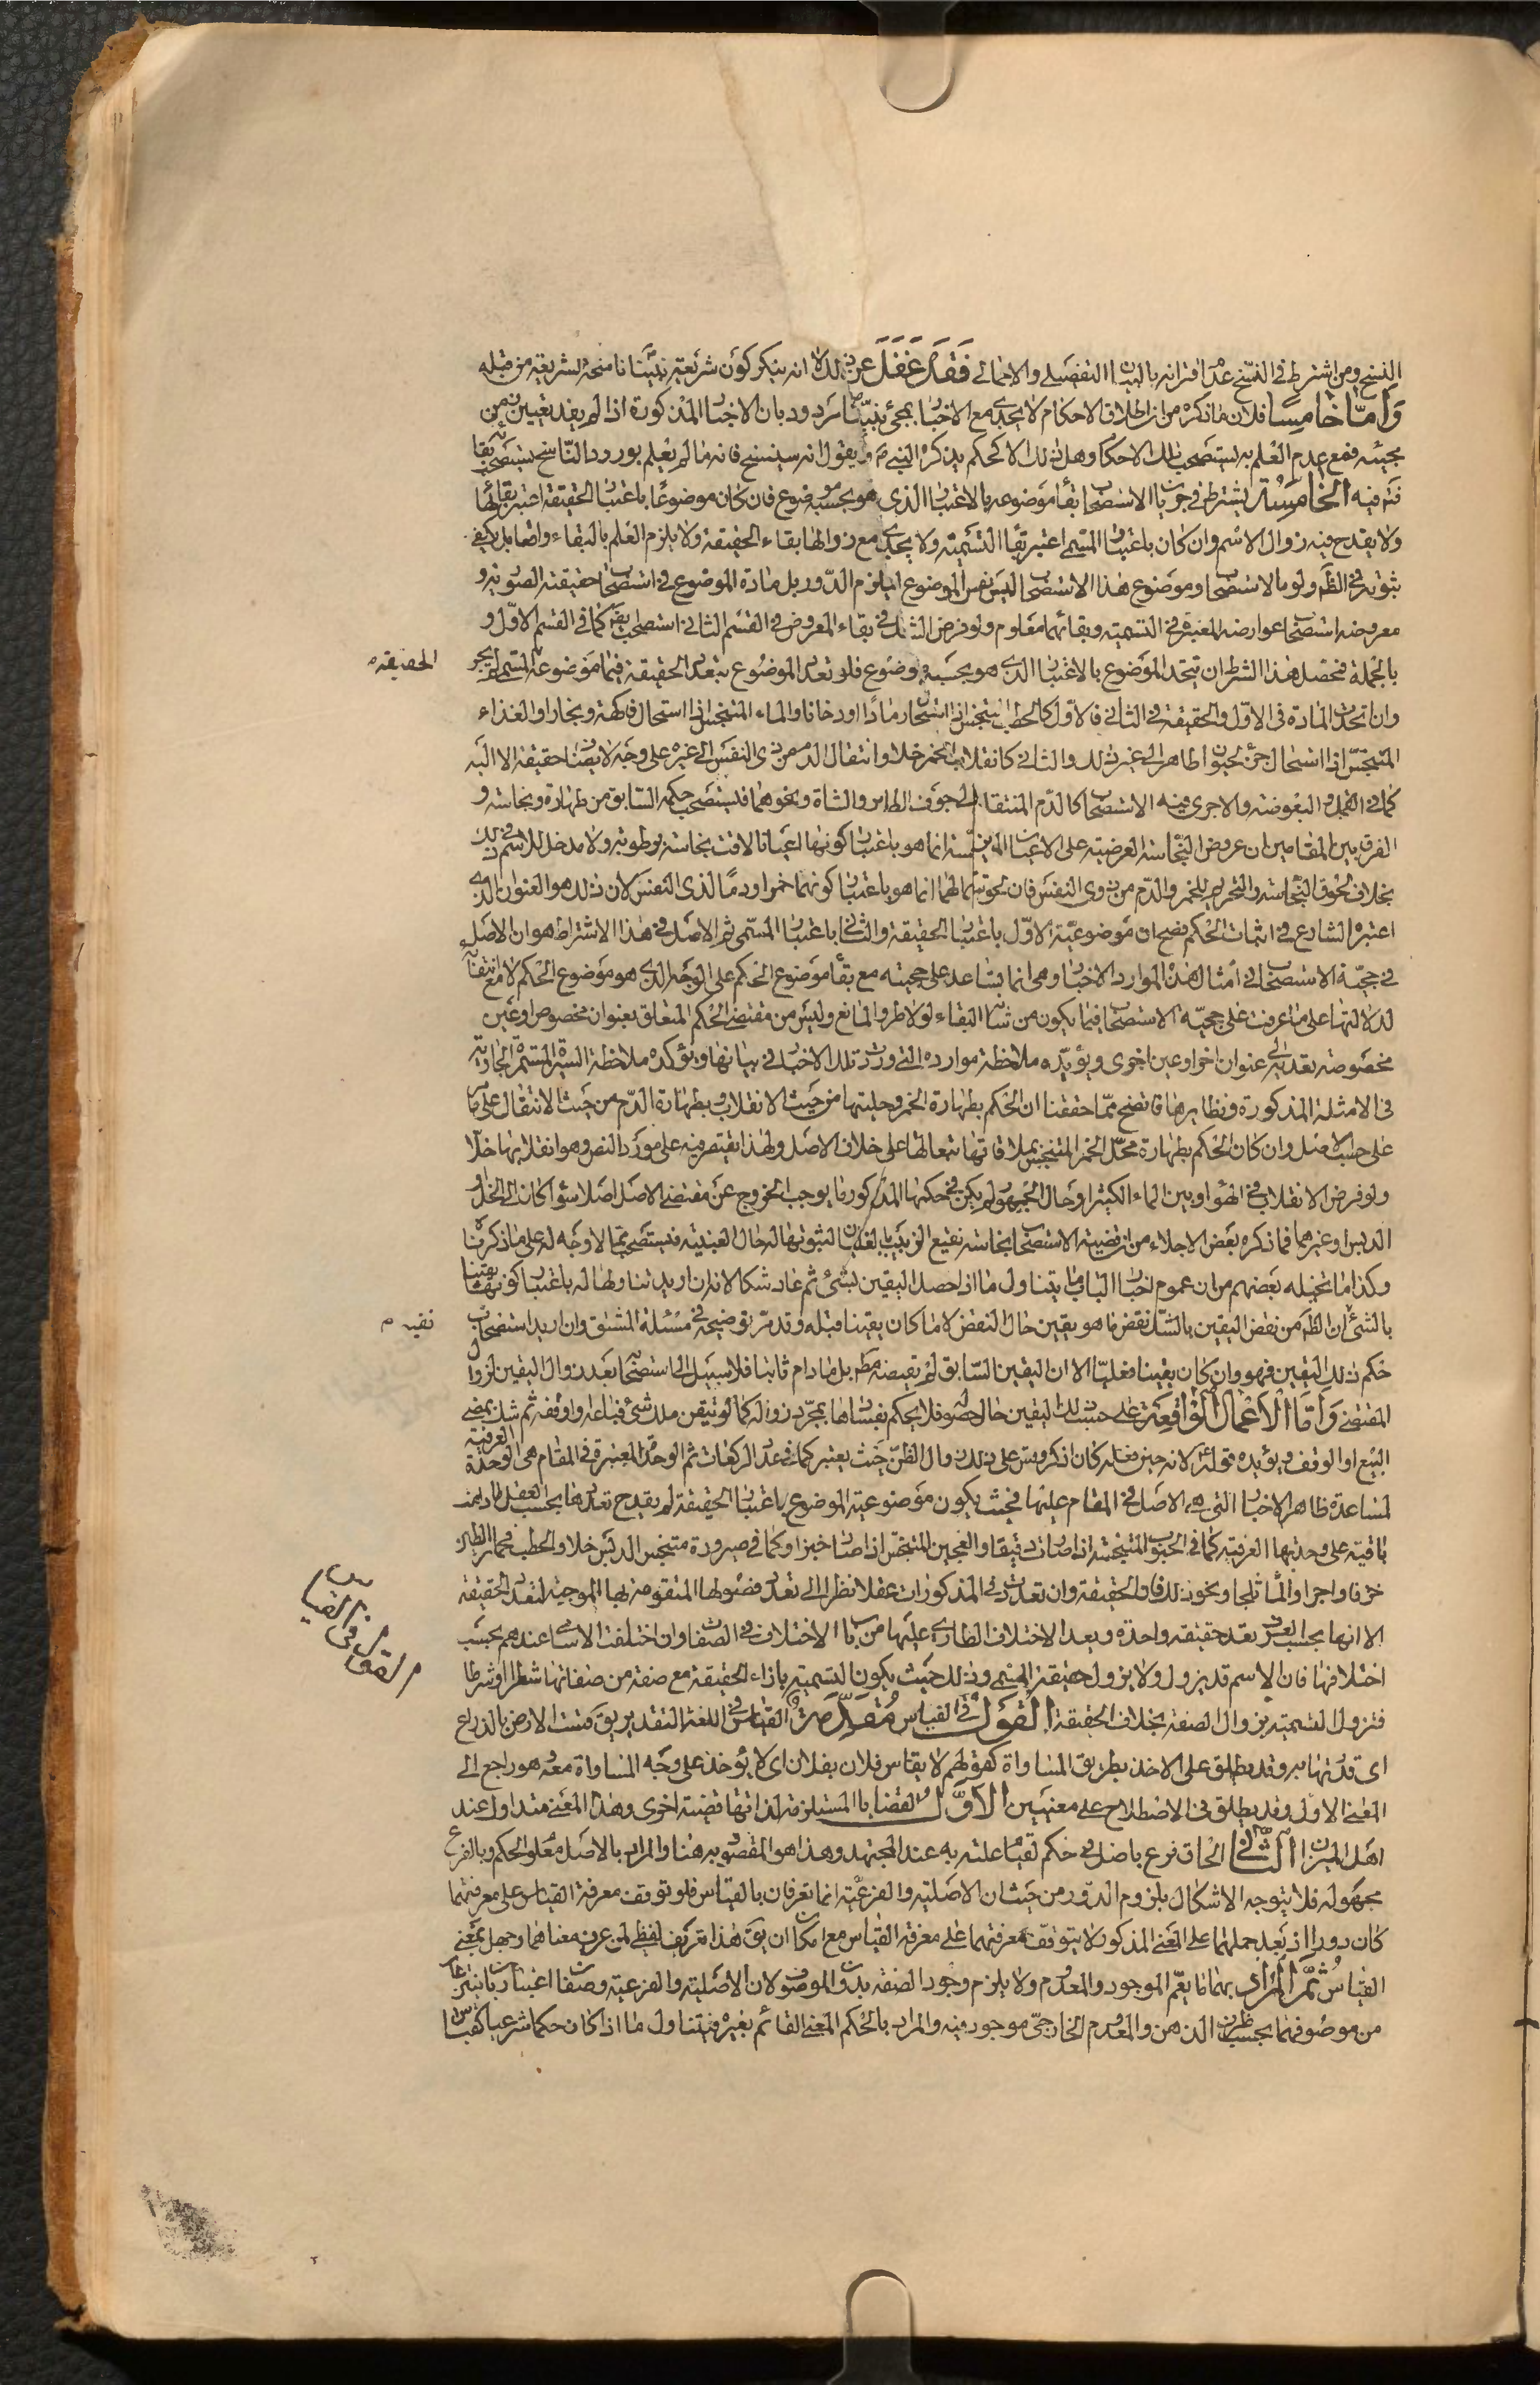 النسخ ومن اشترط في النسخ عدم اقترانه بالبيان التفصيلي والاجمالي فَقَد غَفَلَ عن ذلك لا انه ينكر كون شريعة نبيّنا ناسخة لشريعة من قبله
وَأمّا خامِسًا فلان ما ذكره من ان اطلاق الاحكام لا يجدى مع الاخبار بمجئ نبيّنا ص مردود بان الاخبار المذكورة اذا لم يفد تعيين زمن
مجيئه فمع عدم العلم به يستصحب تلك الاحكام وهل ذلك الا كحكم يذكره النبي ص ويقول انه سينسخ فانه ما لم يعلم بورود الناسخ يستصحب بقائه
فتم فيه الخامسة يشترط في جريان الاستصحاب بقاء موضوعه بالاعتبار الذي هو بحسبه موضوع فان كان موضوعًا باعتبار الحقيقة اعتبر بقائها
ولا يقدح فيه زوال الاسم وان كان باعتبار التسمية اعتبر بقاء التسمية ولا يجدى مع زوالها بقاء الحقيقة ولا يلزم العلم بالبقاء واقعا بل يكفى
ثبوته في الظم ولو بالاستصحاب وموضوع هذا الاستصحاب ليس نفس الموضوع ليلزم الدّور بل مادة الموضوع في استصحاب حقيقته الصورية و
معروضه استصحاب عوارضه المعتبرة في التسمية وبقائهما معلوم ولو فرض الشك في بقاء المعروض في القسم الثاني استصحب بقائه كما في القسم الاوّل و
بالجملة فمحصل هذا الشرط ان يتحد الموضوع بالاعتبار الذي هو بحسبه موضوع فلو تعدد الموضوع بتعدد الحقيقة فيما موضوعه المسمى لم يجر
الحقيقة
وان اتحدت المادة في الاوّل والحقيقة في الثاني فالاوّل كالحطب المتنجس اذا استحال رمادًا او دخانا والماء المتنجس اذا استحال فاكهة وبخارا والغذاء
المتنجّس اذا استحال جزء لحيوان طاهر الى غير ذلك والثاني كانقلاب الخمر خلا وانتقال الدم من ذى النفس الى غيره على وجه لا يضاف حقيقة الا اليه
كما في القمل والبعوضة والا جرى فيه الاستصحاب كالدّم المنتقل الى جوف الطاير والشاة ونحوهما فيستصحب حكمه السّابق من طهارة ونجاسة و
الفرق بين المقامين ان عروض النّجاسة العرضية على الاعيان انما هو باعتبار كونها اعيانا لاقت نجاسة برطوبة ولا مدخل للاسم في ذلك
بخلاف لحوق النّجاسة والتحريم للخمر والدّم من ذوى النفس فان لحوقهما لهما انما هو باعتبار كونهما خمرا ودمًا لذى النفس لان ذلك هو العنوان الذي
اعتبره الشارع في اثبات الحكم فصح ان موضوعيّة الاوّل باعتبار الحقيقة والثاني باعتبار المسمّى ثم الاصل في هذا الاشتراط هو ان الاصل
في حجيّة الاستصحاب في امثال هذه الموارد الاخبار وهى انما تساعد على حجيته مع بقاء موضوع الحكم على الوجه الذي هو موضوع الحكم لا مع انتفائه
لدلالتها على ما عرفت على حجيّة الاستصحاب فيما يكون من شانه البقاء لولا طروّ المانع وليس من مقتضى الحكم المتعلق بعنوان مخصوص او عين
مخصوصة تعديه الى عنوان اخر او عين اخرى ويؤيّده ملاحظة موارده التي وردت تلك الاخبار في بيانها ويؤكده ملاحظة السيرة المستمرّة الجارية
في الامثلة المذكورة ونظايرها فاتضح ممّا حققنا ان الحكم بطهارة الخمر وحليتها من حيث الانقلاب وبطهارة الدّم من حيث الانتقال
على حسب الاصل وان كان الحكم بطهارة محلّ الخمر المتنجس بملاقاتها تبعا لها على خلاف الاصل ولهذا يقتصر فيه على مورد النص وهو انقلابها خلا
ولو فرض الانقلاب في الهواء وبين الماء الكثير او حال الجمود لم يكن في حكمها المذكور ما يوجب الخروج عن مقتضى الاصل اصلا سواء كان الى الخل او
الدبس او غيرهما فما ذكره بعض الاجلاء من ان قضية الاستصحاب نجاسة نقيع الزبيب بالغليان لثبوتها له حال العنبية فيستصحب ممّا لا وجه له على ما ذكرنا
وكذا ما تخيله بعضهم من ان عموم اخبار الباب ما يتناول ما اذا حصل اليقين بشئ ثم عاد شكا لانه ان اريد تناولها له باعتبار كونه يقينا
بالشئ ان الظم من نقض اليقين بالشّك نقض ما هو يقين حال النقض لا ما كان يقينا قبله وقد مرّ توضيحه في مسئلة المشتق وان اريد استصحاب
تقديم
حكم ذلك اليقين فهو وان كان يقينا فعليّا الا ان اليقين السّابق لم يقتضه مطم بل ما دام ثابتا فلا سبيل الى استصحابه بعد زوال اليقين لزوال
المقتضى وَأمّا الاعمال الواقعة على حسب ذلك اليقين حال حصوله فلا يحكم بفسادها بمجرّد زواله كما لو تيقن ملك شئ فباعه او اوقفه ثم شك يمضى
البيع او الوقف ويؤيده قوله ع لانه حين فعله كان اذكر وقس على ذلك زوال الظنّ حيث يعتبر كما في عدد الركعات ثم الوحدة المعتبرة في المقام هى الوحدة العرفية
لمساعدة ظاهر الاخبار التي هي الاصل في المقام عليها فحيث يكون موضوعية الموضوع باعتبار الحقيقة لم يقدح تعددها بحسب العقل اذا كانت
باقية على وحدتها العرفية كما في الحبوب المتنجسة اذا صارت دقيقا والعجين المتنجّس اذا صار خبزا وكما في صيرورة متنجس الدبس خلا والحطب فحما والطين
خزفا واجرا والماء ثلجا ونحو ذلك فان الحقيقة وان تعددت في المذكورات عقلا نظرا الى تعدد فصولها المتقومة بها الموجبة لتعدد الحقيقة
الا انها بحسب العرف تعد حقيقة واحدة وبعد الاختلاف الطارى عليها من باب الاختلاف في الصفات وان اختلفت الاسامى عندهم بحسب
القول في القياس
اختلافها فان الاسم قد يزول ولا يزول حقيقة المسمى وذلك حيث يكون التسمية بازاء الحقيقة مع صفة من صفاتها شطرا او شرطا
فتزول التسمية بزوال الصفة بخلاف الحقيقة القول في القياس مُقدِّمَة القياس في اللغة التقدير يقَ قست الارض بالذراع
اى قدّرتها به وقد يطلق على الاخذ بطريق المساواة كقولهم لا يقاس فلان بفلان اى لا يؤخذ على وجه المساواة معه وهو راجع الى
المعنى الاوّل وقد يطلق في الاصطلاح على معنيين الاَوّل القضايا المستلزمة لذاتها قضية اخرى وهذا المعنى متداول عند
اهل الميزان الثّاني الحاق فرع باصل في حكم لقيام علته به عند المجتهد وهذا هو المقصود به هنا والمراد بالاصل معلوم الحكم وبالفرع
مجهوله فلا يتوجه الاشكال بلزوم الدّور من حيث ان الاصلية والفرعيّة انما تعرفان بالقياس فلو توقف معرفة القياس على معرفتهما
كان دورا اذ بعد حملهما على المعنى المذكور لا يتوقف معرفتهما على معرفة القياس مع امكان ان يقَ هذا تعريف لفظى لمن عرف معناهما وجهل بمعنى
القياس ثُمّ المراد بهما ما يعمّ الموجود والمعدوم ولا يلزم وجود الصفة بدون الموصوف لان الاصلية والفرعية وصفان اعتباريان
من موصوفهما بحسب ظرف الذهن والمعدوم الخارجىّ موجود فيه والمراد بالحكم المعنى القائم بغيره فيتناول ما اذا كان حكما شرعيا كقياس